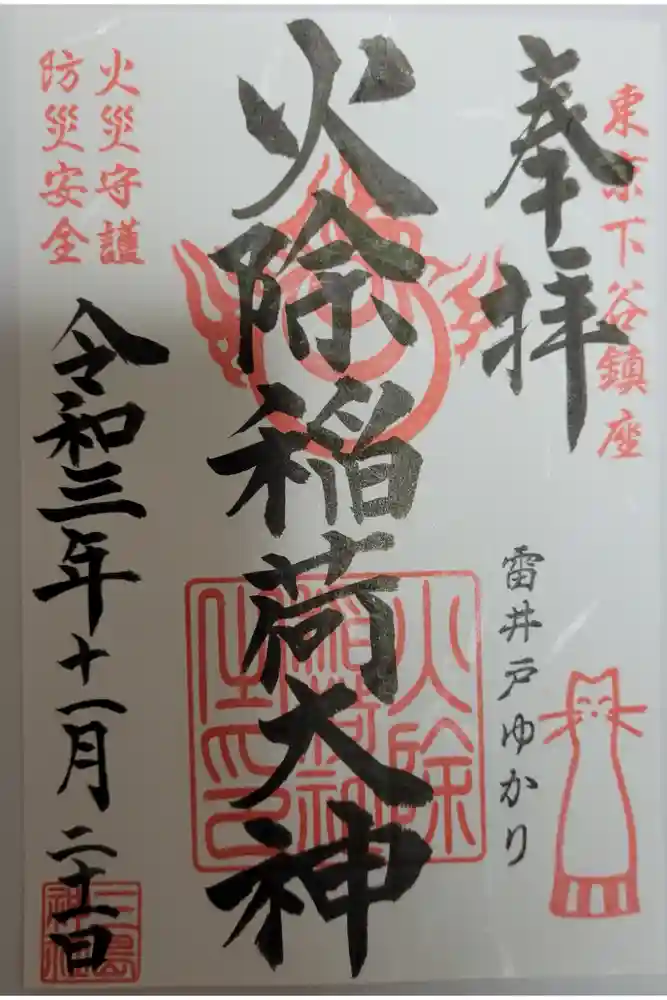 東京下谷鎮座
奉拝
雷井戸ゆかり
火除稲荷大神
火除
稲荷神
之印
火災守護
防災安全
令和三年十一月二十一日
三島
神社